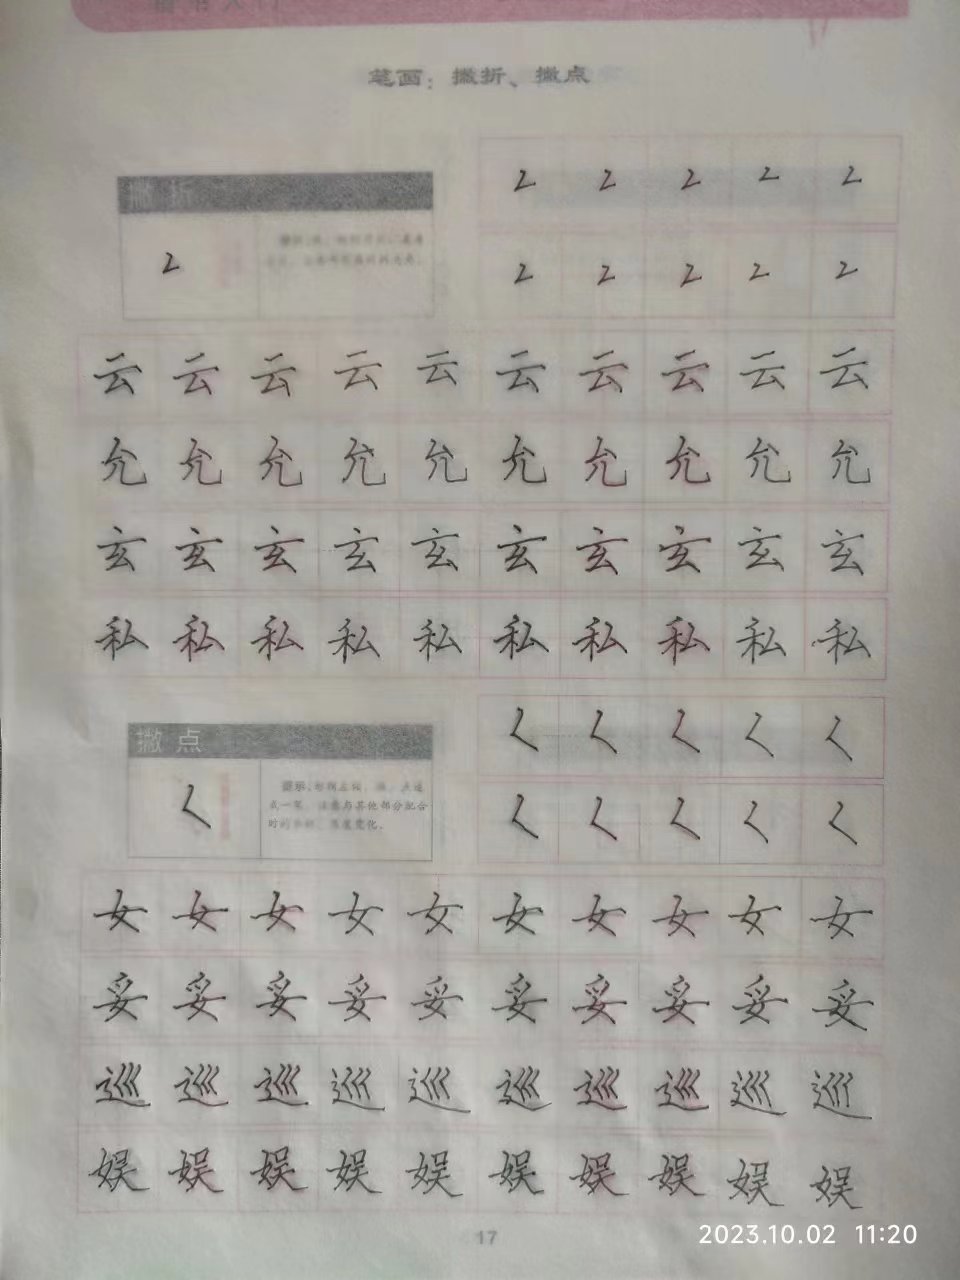 笔画：撇折、撇点
撇 折
云 云 云 云 云 云 云 云 云 云
允 允 允 允 允 允 允 允 允 允
玄 玄 玄 玄 玄 玄 玄 玄 玄 玄
私 私 私 私 私 私 私 私 私 私
撇 点
提示：
成一笔，注意与其他部分配合
时的
变化。
女 女 女 女 女 女 女 女 女 女
妥 妥 妥 妥 妥 妥 妥 妥 妥 妥
巡 巡 巡 巡 巡 巡 巡 巡 巡 巡
娱 娱 娱 娱 娱 娱 娱 娱 娱 娱
17
2023.10.02 11:20